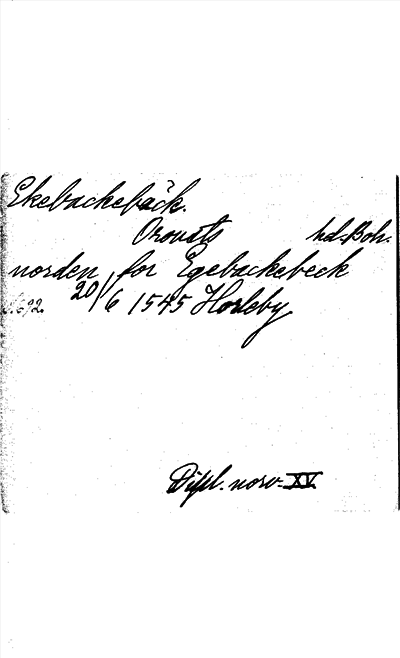 Ekebackebäck.
Orousts hd. Boh.
norden for Egebackebeck
S. 692. 20/6 1545 Horleby
Dipl. norv. XV